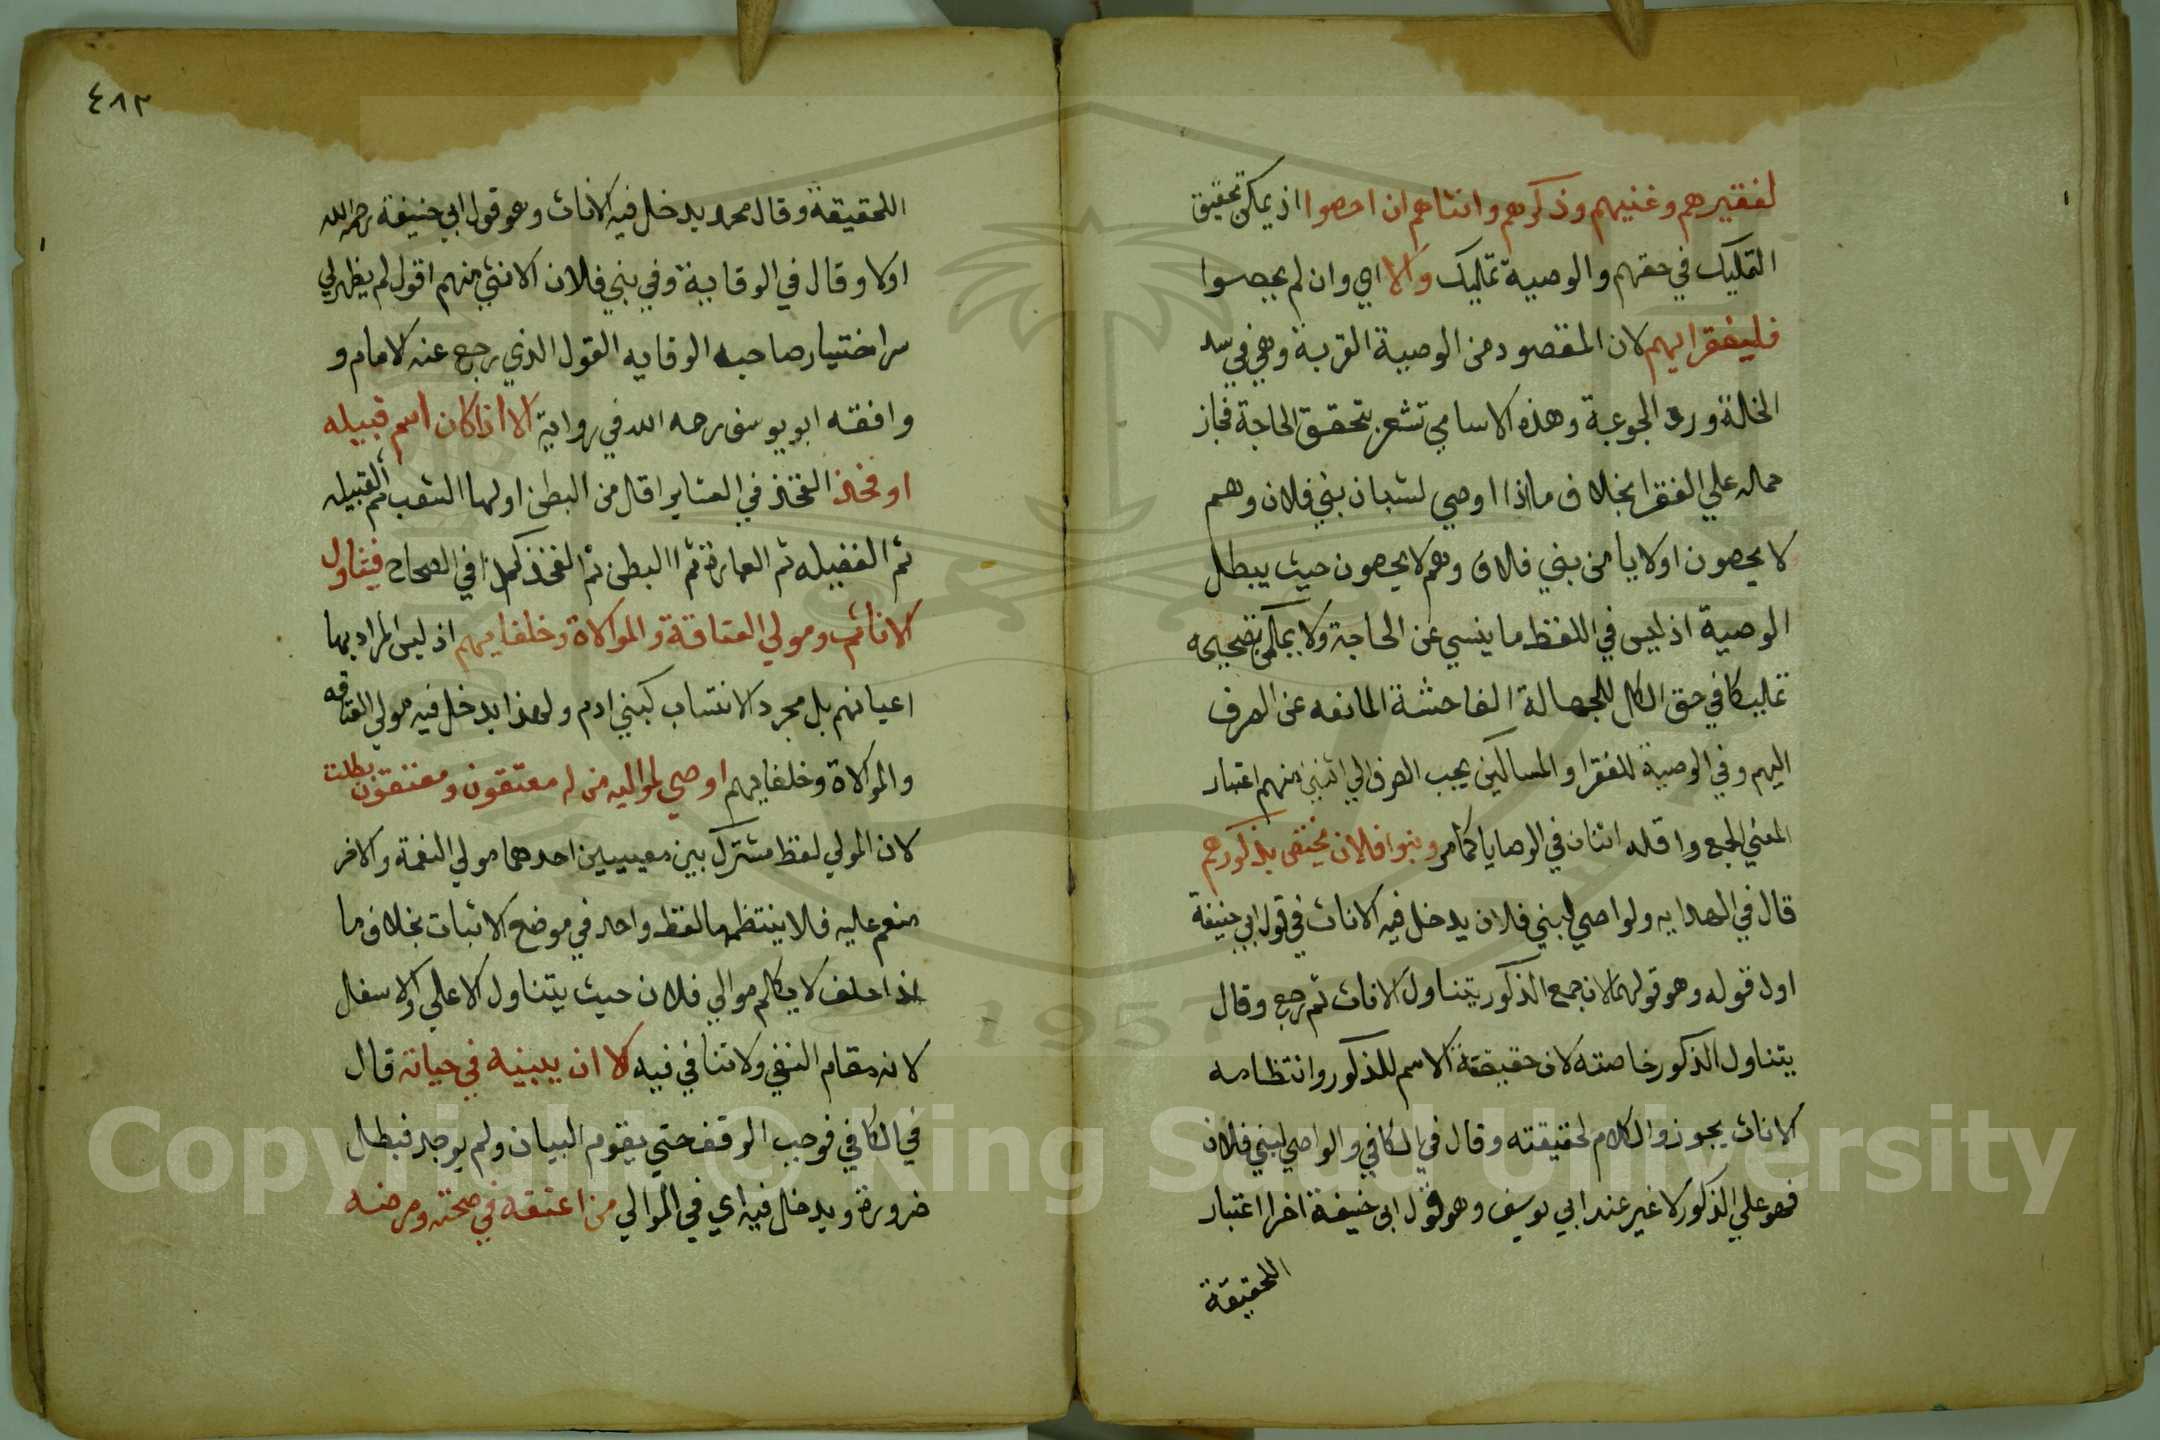 لفقيرهم وغنيهم وذكرهم وانثاهم ان احصوا اذ يمكن تحقيق
التمليك في حقهم والوصية تمليك والا اي وان لم يحصوا
فلفقرايهم لان المقصود من الوصية القربة وهي في سد
الخلة ورد الجوعة وهذه الاسامي تشعر بتحقق الحاجة فجاز
حماله علي الفقرا بخلاف ماذا اوصي لشبان بني فلان وهم
لا يحصون او لايامى بني فلان وهم لا يحصون حيث يبطل
الوصية اذ ليس في اللفظ ما ينسي عن الحاجة ولا يمكن تصحيحه
تمليكا في حق الكل للجهالة الفاحشة المانعه عن الصرف
اليهم وفي الوصية للفقرا والمساكين يجب الصرف الي اثنين منهم اعتبار
المعني الجمع واقله اثنان في الوصايا كما مر وبنوا فلان يختص بذكورهم
قال في الهدايه ولو اصي لبني فلان يدخل فيه الاناث في قول ابي حنيفة
اول قوله وهو قولهما لان جمع الذكور يتناول الاناث ثم رجع وقال
يتناول الذكور خاصته لان حقيقة الاسم للذكور وانتظامه
الاناث يجوز والكلام لحقيقته وقال في الكافي والو اصي لبني فلان
فهو علي الذكور لا غير عند ابي يوسف وهو قول ابي حنيفة اخرا اعتبار
اللحقيقة
٤٨٢
اللحقيقة وقال محمد يدخل فيه الاناث وهو قول ابي حنيفة رحمه الله
اولا وقال في الوقاية وفي بني فلان الانثي منهم اقول لم يظهر لي
سر اختيار صاحب الوقايه القول الذي رجع عنه الامام و
وافقه ابو يوسف رحه الله في رواية الا اذا كان اسم قبيله
او فخذ الفخذ في العشاير اقل من البطن اولها الشعب ثم القبيله
ثم الفضيله ثم العمارة ثم االبطن ثم الفخذ كذا في الصحاح فيتناول
الاناث ومولي العتاقة والموالاة وخلفايهم اذ ليس المراد بها
اعيانهم بل مجرد الانتساب كبني ادم ولهذا يدخل فيه مولي العتاقه
والموالاة وخلفايهم اوصي لمواليه من له معتقون ومعتقون بطلت
لان المولي لفظ مشترك بين معنيين احدهما مولي النعمة والاخر
منعم عليه فلا ينتظمهما لفظ واحد في موضع الاثبات بخلاف ما
اذا حلف لا يكالم موالي فلان حيث يتناول الاعلي والاسفل
لانه مقام النفي ولا تنافي فيه الا ان يبينه في حياته قال
في الكافي فوجب الوقف حتي يقوم البيان ولم يوجد فبطل
ضرورة ويدخل فيه اي في الموالي من اعتقه في صحته ومرضه
Copyright © King Saud University
1957